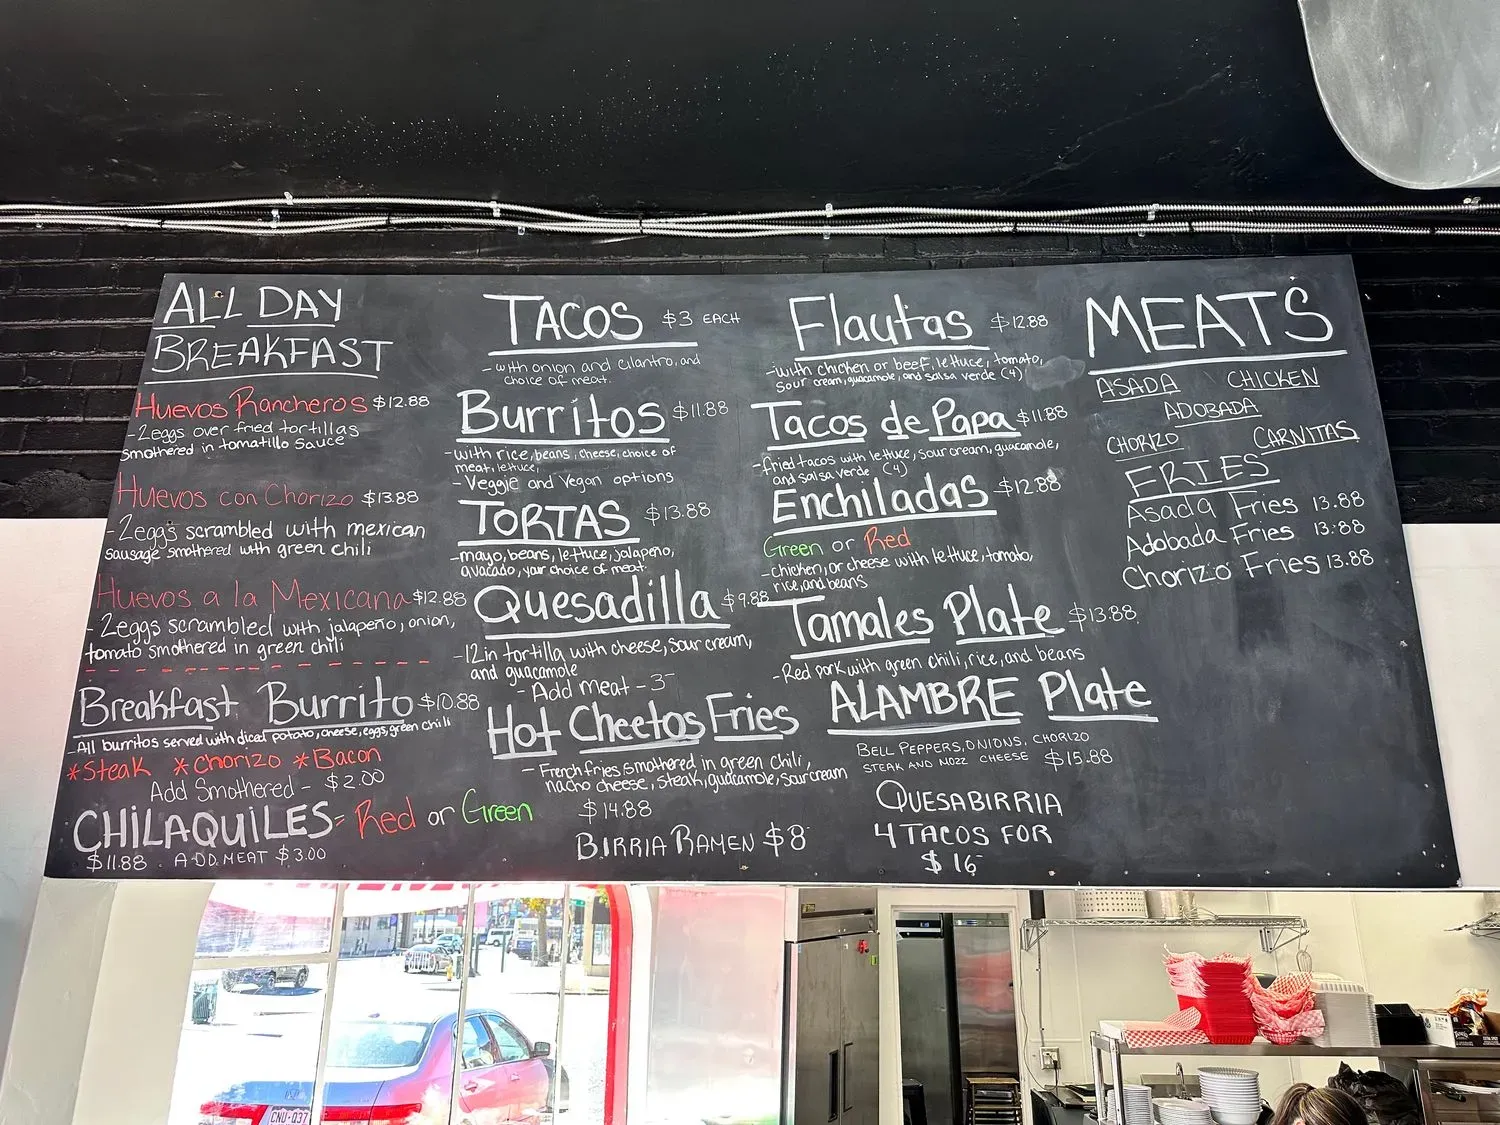 ALL DAY
BREAKFAST
Huevos Rancheros $12.88
-2eggs over fried tortillas
smothered in tomatillo sauce
Huevos con Chorizo $13.88
-2eggs scrambled with mexican
sausage smothered with green chili
Huevos a la Mexicana $12.88
-2eggs scrambled with jalapeño, onion,
tomato smothered in green chili
Breakfast Burrito $10.88
-All burritos served with diced potato, cheese, eggs, green chili
*Steak *Chorizo *Bacon
Add Smothered - $2.00
CHILAQUILES- Red or Green
$11.88 . ADD MEAT $3.00
TACOS $3 EACH
-with onion and cilantro, and
choice of meat.
Burritos $11.88
-with rice, beans, cheese, choice of
meat, lettuce,
-Veggie and Vegan options
TORTAS $13.88
-mayo, beans, lettuce, jalapeño,
avacado, your choice of meat.
Quesadilla $9.88
-12in tortilla with cheese, sour cream,
and guacamole
-Add meat - 3-
Hot Cheetos Fries
-French fries smothered in green chili,
nacho cheese, steak, guacamole, sour cream
$14.88
BIRRIA RAMEN $8
Flautas $12.88
-with chicken or beef, lettuce, tomato,
sour cream, guacamole, and salsa verde (4)
Tacos de Papa $11.88
-fried tacos with lettuce, sour cream, guacamole,
and salsa verde (4)
Enchiladas $12.88
Green or Red
-chicken, or cheese with lettuce, tomato,
rice, and beans
Tamales Plate $13.88
-Red pork with green chili, rice, and beans
ALAMBRE Plate
BELL PEPPERS, ONIONS, CHORIZO
STEAK AND MOZZ CHEESE $15.88
QUESABIRRIA
4 TACOS FOR
$16-
MEATS
ASADA CHICKEN
ADOBADA
CHORIZO CARNITAS
FRIES
Asada Fries 13.88
Adobada Fries 13.88
Chorizo Fries 13.88
CNU-Q37